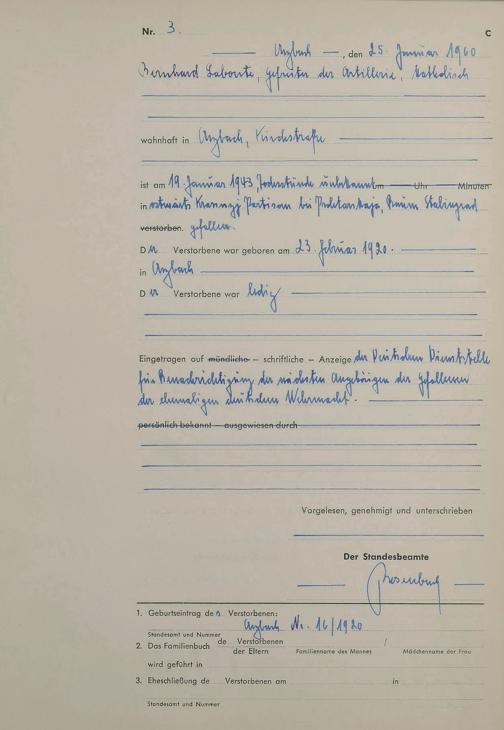 Nr. 3. C
Arzbach, den 25. Januar 1960
Bernhard Laborte, Gefreiter der Artillerie, katholisch
wohnhaft in Arzbach, Kirchstraße
ist am 19. Januar 1943, Todesstunde unbekannt um Uhr Minuten
in ostwärts Krassnyj Partisan bei Proletarskaja, Raum Stalingrad
verstorben. gefallen.
Der Verstorbene war geboren am 23. Februar 1920.
in Arzbach
Der Verstorbene war ledig
Eingetragen auf mündliche – schriftliche – Anzeige der Deutschen Dienststelle
für Benachrichtigung der nächsten Angehörigen der Gefallenen
der ehemaligen deutschen Wehrmacht.
persönlich bekannt – ausgewiesen durch
Vorgelesen, genehmigt und unterschrieben
Der Standesbeamte
1. Geburtseintrag des Verstorbenen:
Arzbach Nr. 16/1920
Standesamt und Nummer
2. Das Familienbuch de Verstorbenen /
der Eltern Familienname des Mannes Mädchenname der Frau
wird geführt in
3. Eheschließung de Verstorbenen am in
Standesamt und Nummer